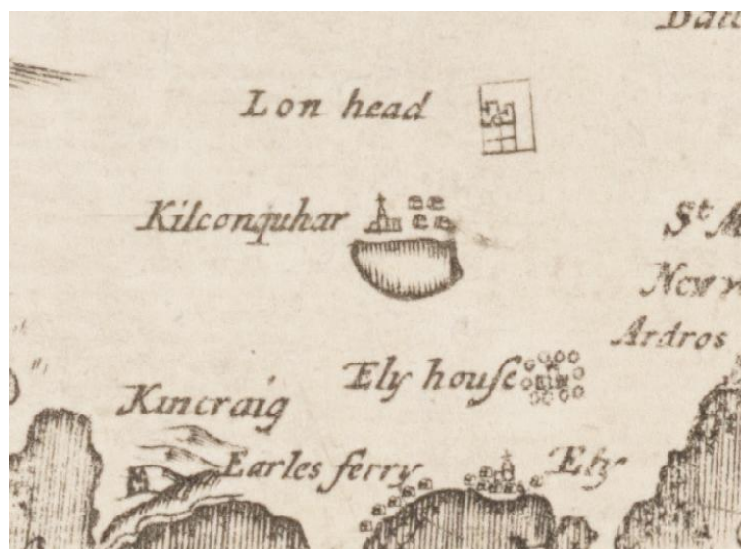 Lon head
Kilconquhar
St M
New
Ardros
Ely houſe
Kincraig
Earles ferry
Ely